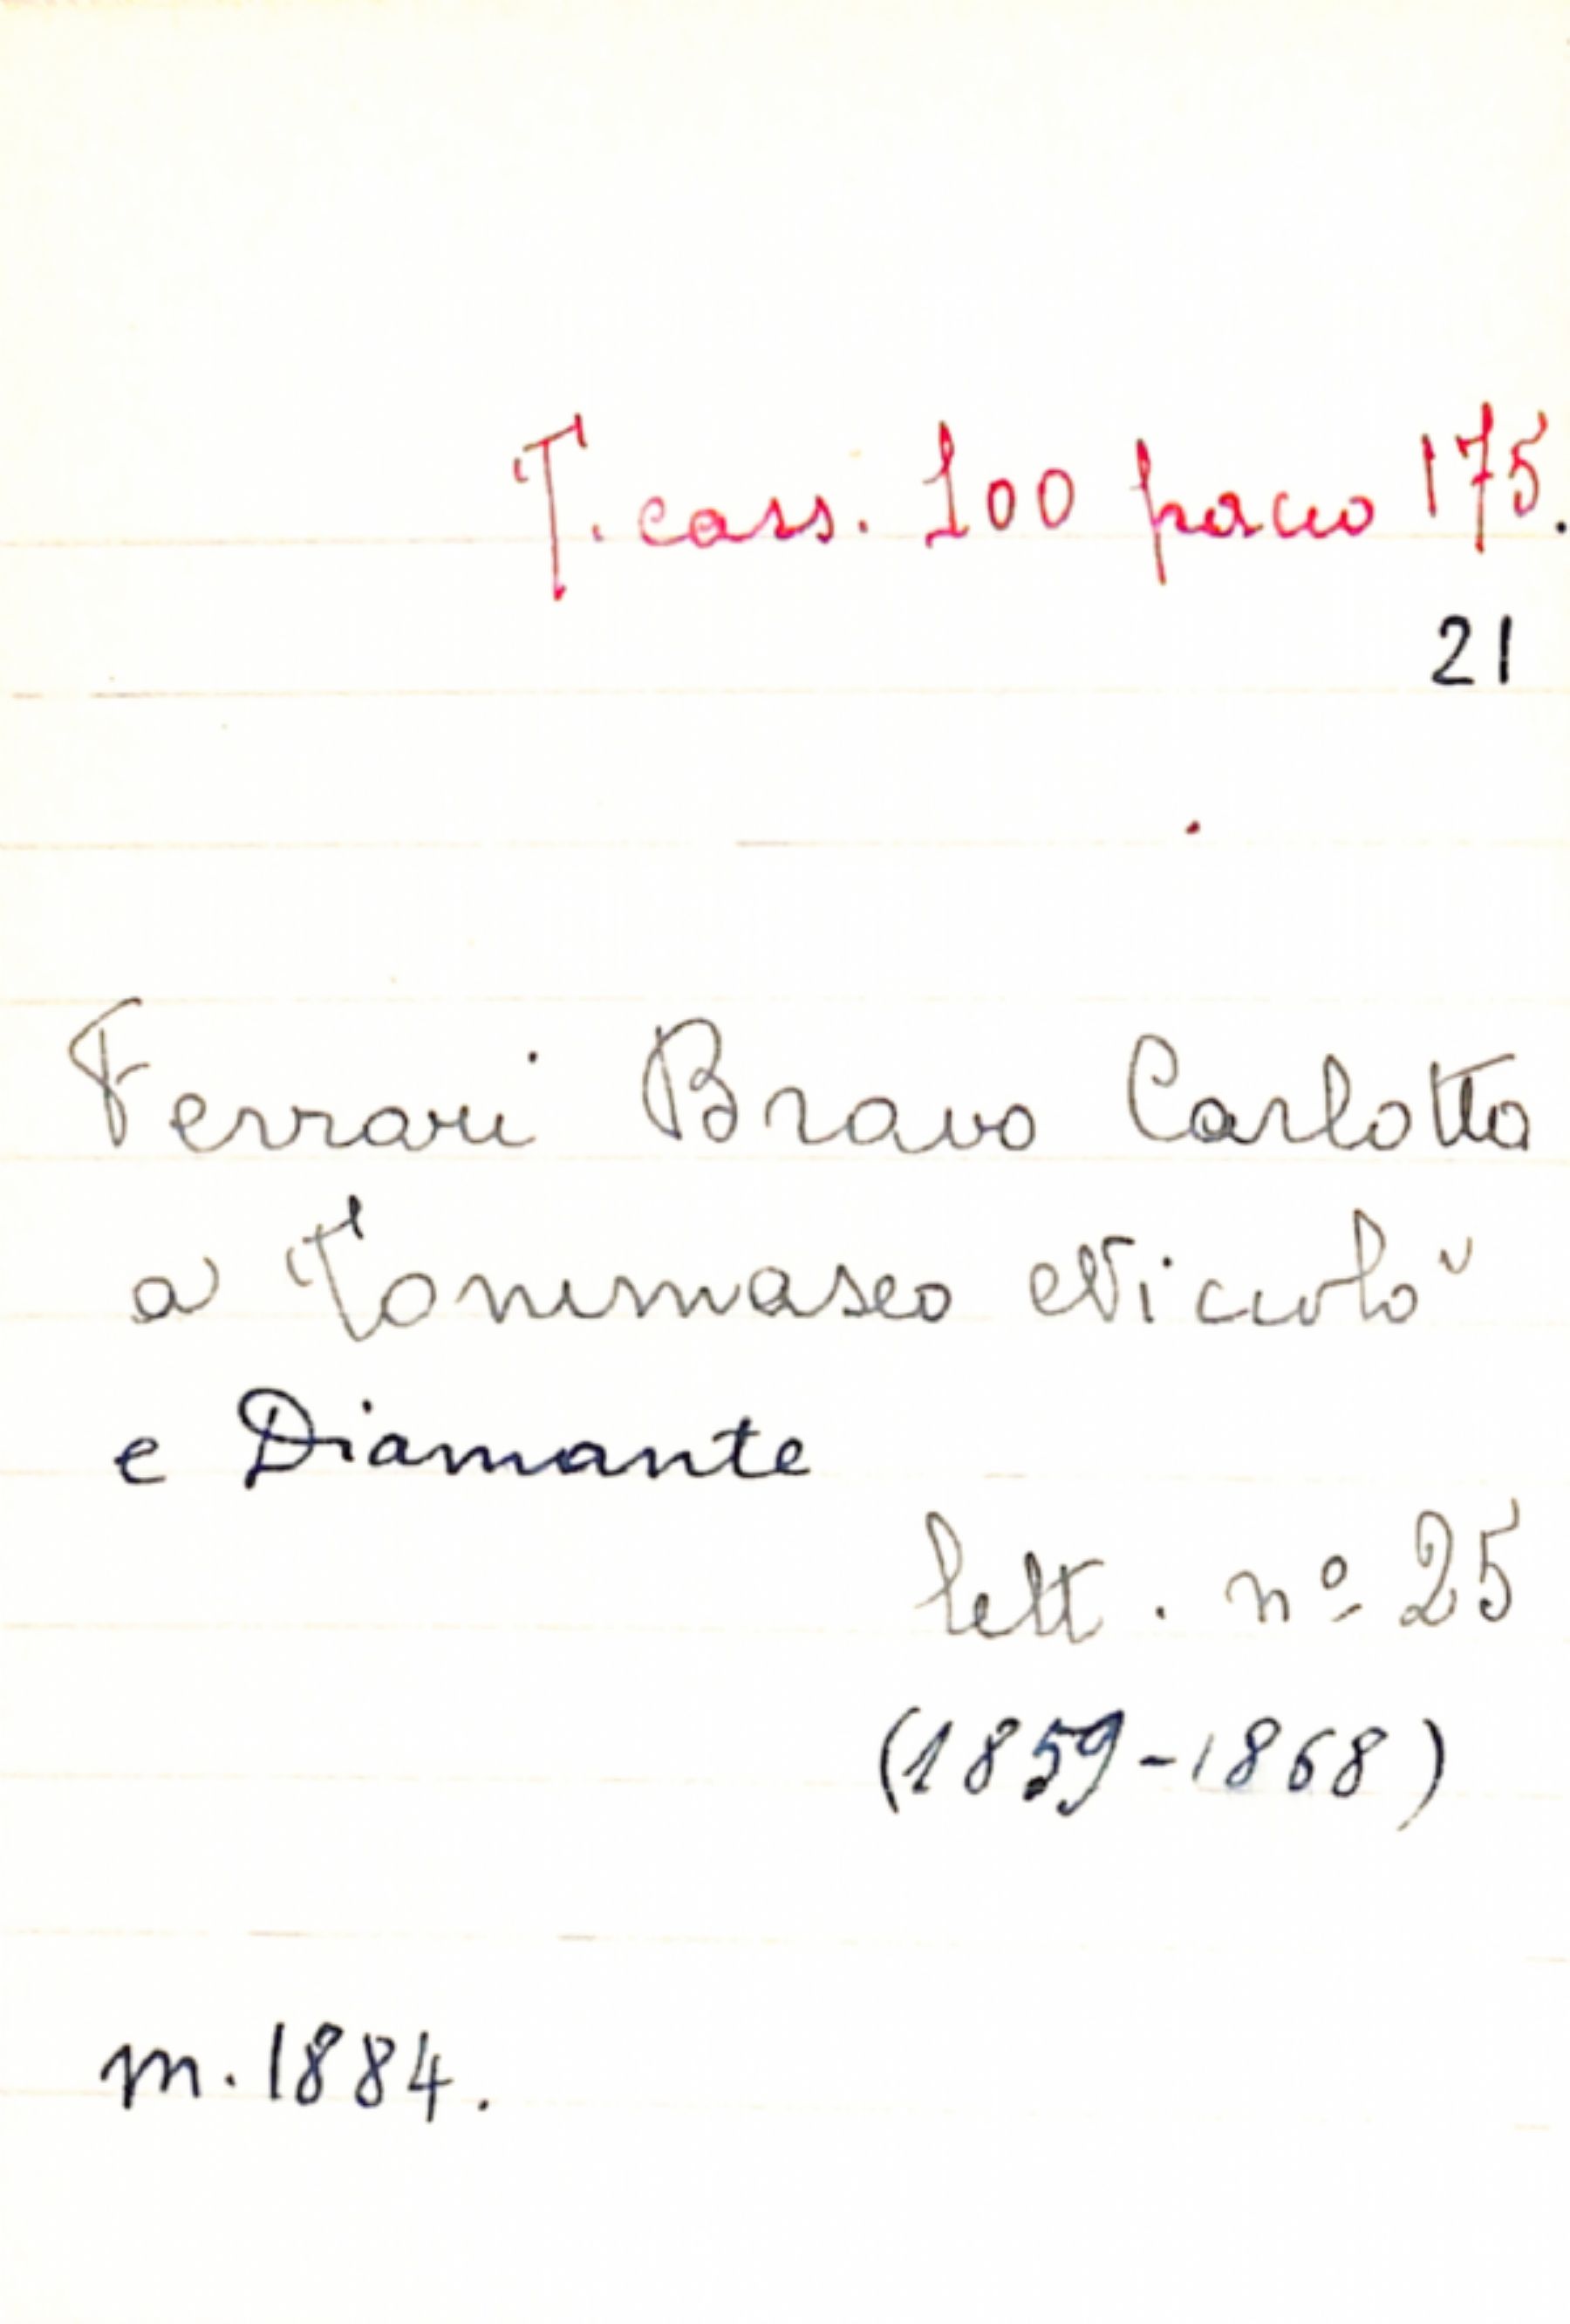 T. cass. 100 pacco 175.
21
Ferrari Bravo Carlotta
a Tommaseo Niccolò
e Diamante
lett. nº 25
(1859-1868)
m. 1884.